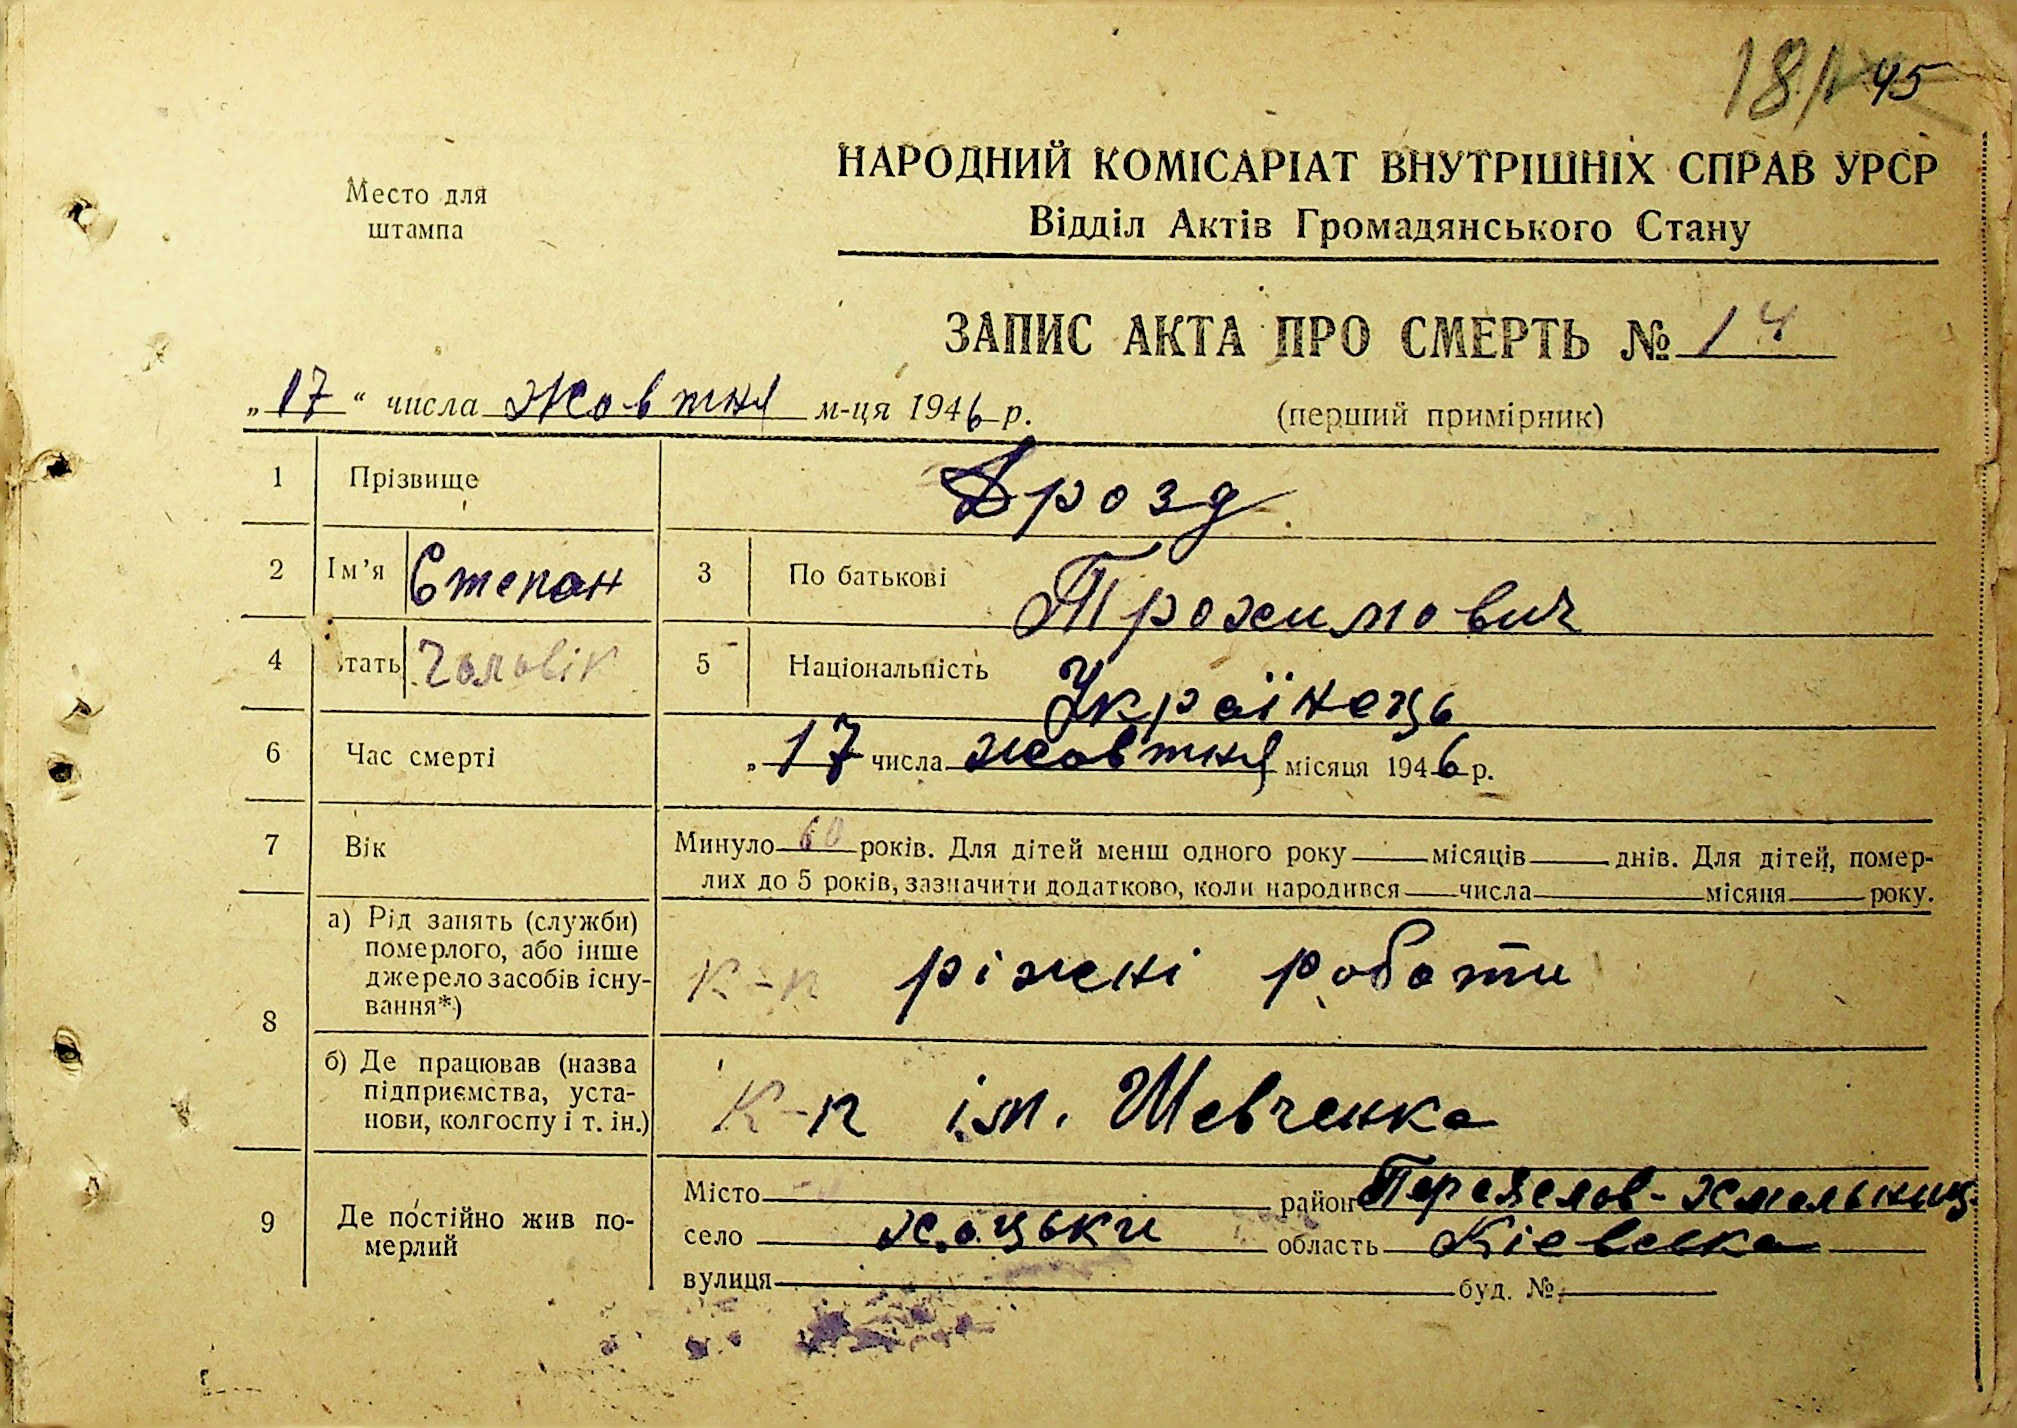 181 45
Место для
штампа
НАРОДНИЙ КОМІСАРІАТ ВНУТРІШНІХ СПРАВ УРСР
Відділ Актів Громадянського Стану
ЗАПИС АКТА ПРО СМЕРТЬ № 14
„17“ числа Жовтня м-ця 1946 р.
(перший примірник)
1 Прізвище Дрозд
2 Ім’я Степан 3 По батькові Трохимович
4 стать Чоловік 5 Національність Українець
6 Час смерті „17 числа жовтня місяця 1946 р.
7 Вік Минуло 60 років. Для дітей менш одного року місяців днів. Для дітей, помер-
лих до 5 років, зазначити додатково, коли народився числа місяця року.
8 а) Рід занять (служби)
померлого, або інше
джерело засобів існу-
вання*)
к-п ріжні роботи
б) Де працював (назва
підприємства, уста-
нови, колгоспу і т. ін.)
К-п ім. Шевченка
9 Де постійно жив по-
мерлий
Місто район Переяслов-Хмельниц.
село Хоцьки область Кіевська
вулиця буд. №